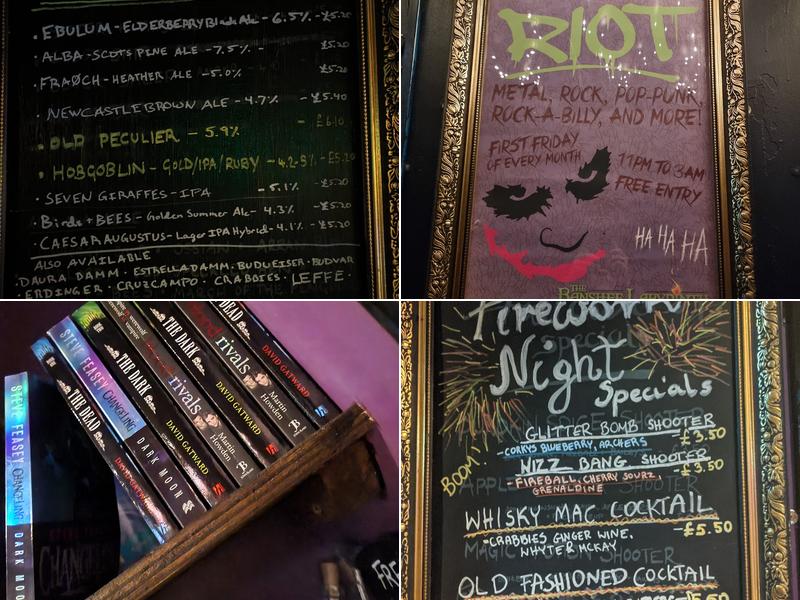 • EBULUM - ELDERBERRY Black Ale - 6.5% - £5.20
• ALBA - SCOTS PINE ALE - 7.5% - £5.20
• FRAØCH - HEATHER ALE - 5.0% - £5.20
• NEWCASTLE BROWN ALE - 4.7% - £5.40
• OLD PECULIER - 5.9% - £6.10
• HOBGOBLIN - GOLD/IPA/RUBY - 4.2-5% - £5.20
• SEVEN GIRAFFES - IPA - 5.1% - £5.20
• Birds + BEES - Golden Summer Ale - 4.3% - £5.20
• CAESAR AUGUSTUS - Lager IPA Hybrid - 4.1% - £5.20
ALSO AVAILABLE
• DAURA DAMM • ESTRELLA DAMM • BUDWEISER • BUDVAR
• ERDINGER • CRUZCAMPO • CRABBIES • LEFFE •
RIOT
METAL, ROCK, POP-PUNK,
ROCK-A-BILLY, AND MORE!
FIRST FRIDAY
OF EVERY MONTH
11PM TO 3AM
FREE ENTRY
HA HA HA
THE
BANSHEE LABYRINTH
STEVE FEASEY CHANGELING DARK MOO
THE DEAD DAVID GATWARD
STEVE FEASEY CHANGELING DARK MOON
THE DARK DAVID GATWARD
rivals Martin Howden
THE DARK DAVID GATWARD
blood rivals Martin Howden
DEAD DAVID GATWARD
CHANGE
FRE
Fireworks
Night
Specials
GLITTER BOMB SHOOTER
- CORKYS BLUEBERRY, ARCHERS - £3.50
BOOM!
WIZZ BANG SHOOTER
- £3.50
- FIREBALL, CHERRY SOURZ,
GRENADINE
WHISKY MAC COCKTAIL
- £5.50
• CRABBIES GINGER WINE,
WHYTE & MCKAY
OLD FASHIONED COCKTAIL